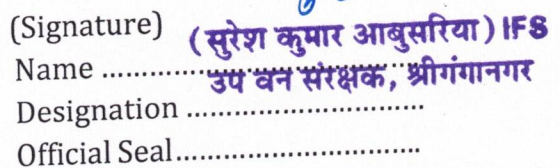 (Signature)
(सुरेश कुमार आबुसरिया) IFS
Name ..............................
उप वन संरक्षक, श्रीगंगानगर
Designation ..............................
Official Seal..............................